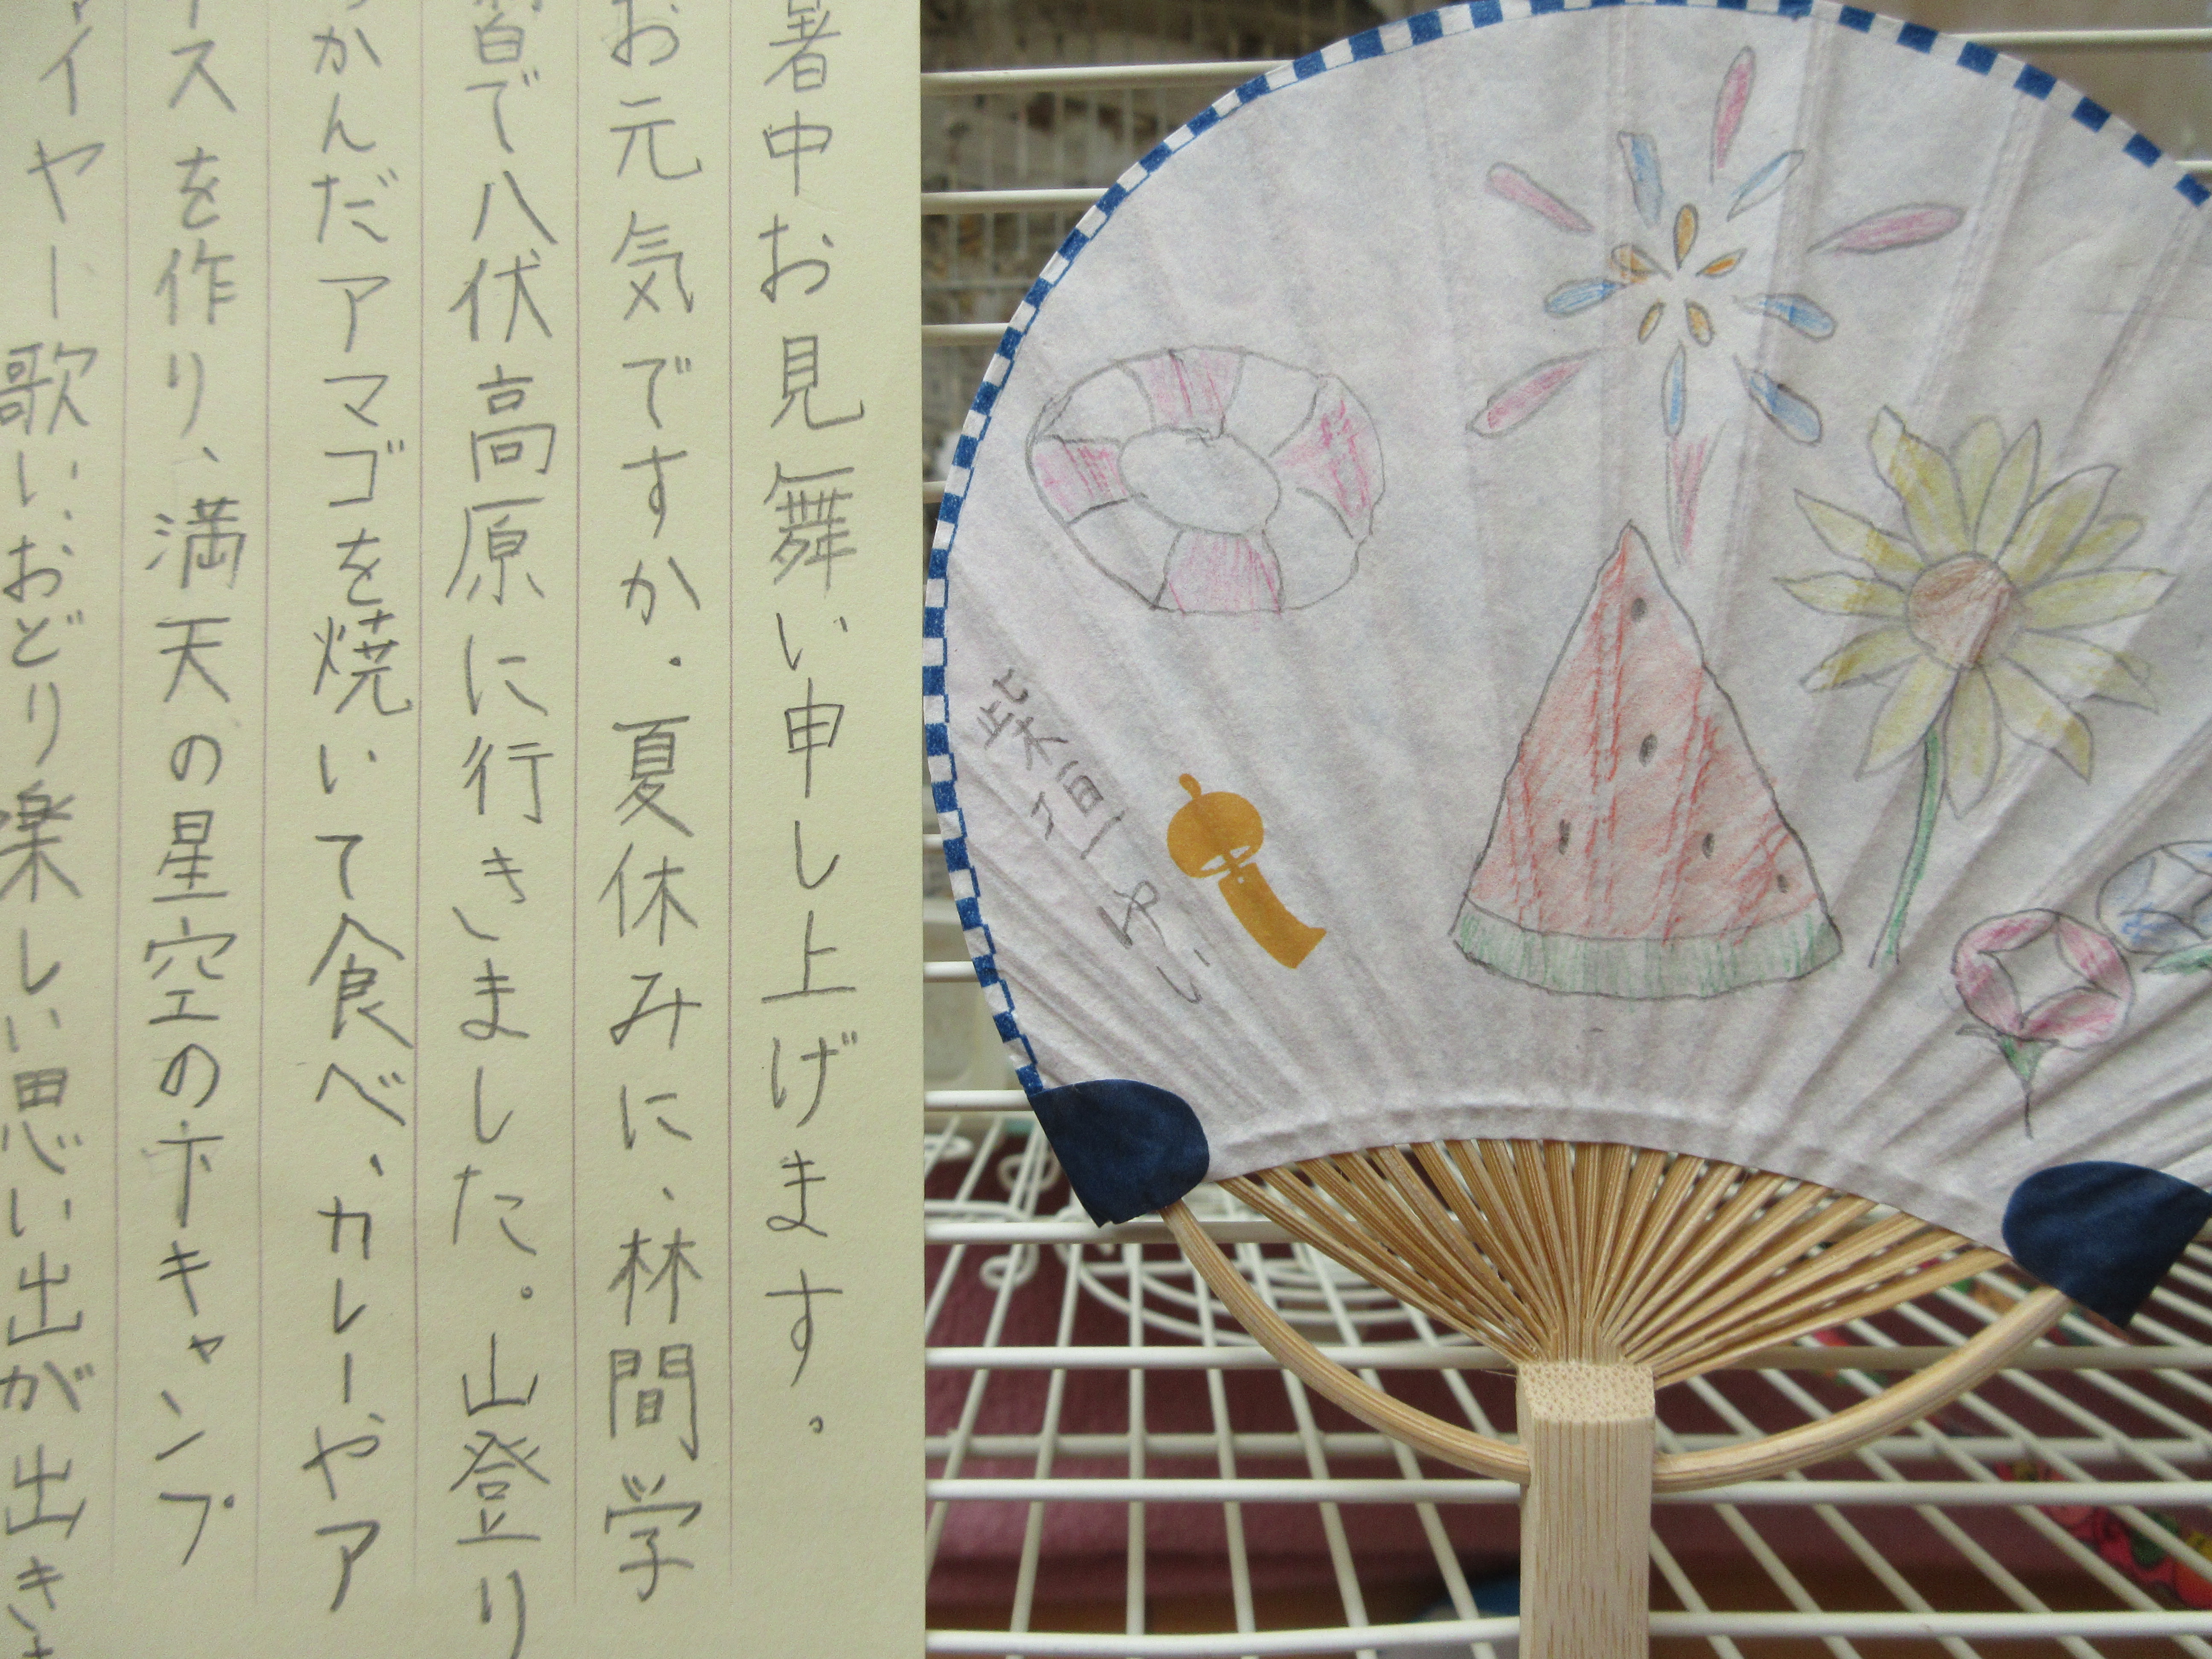 暑中お見舞い申し上げます。
お元気ですか。夏休みに、林間学
習で八伏高原に行きました。山登り
かんだアマゴを焼いて食べ、カレーやア
イスを作り、満天の星空の下キャンプ
ァイヤー歌い、おどり楽しい思い出が出き
柴垣ゆい